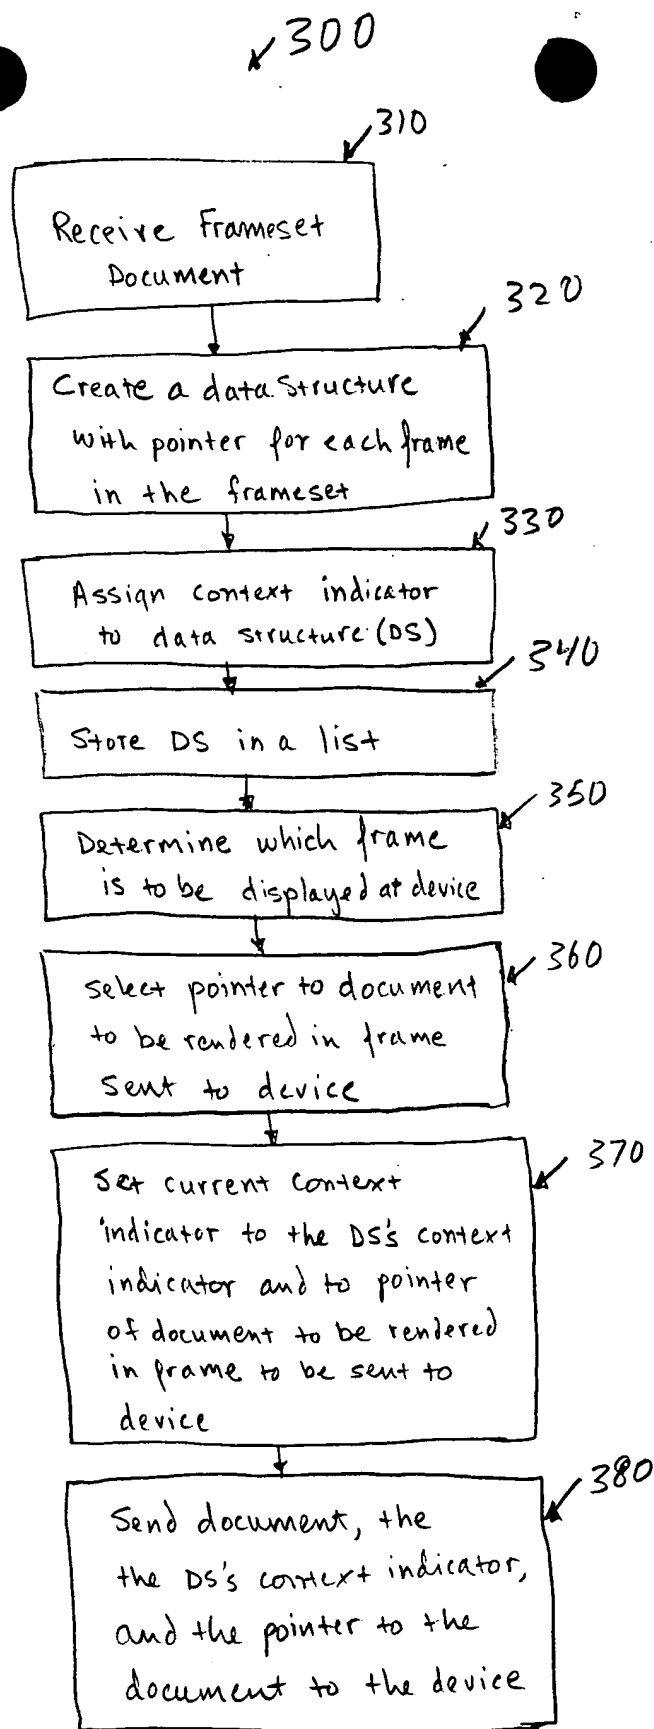 300
310
Receive Frameset
Document
320
Create a data structure
with pointer for each frame
in the frameset
330
Assign context indicator
to data structure (DS)
340
Store DS in a list
350
Determine which frame
is to be displayed at device
360
select pointer to document
to be rendered in frame
sent to device
370
Set current context
indicator to the DS's context
indicator and to pointer
of document to be rendered
in frame to be sent to
device
380
Send document, the
the DS's context indicator,
and the pointer to the
document to the device